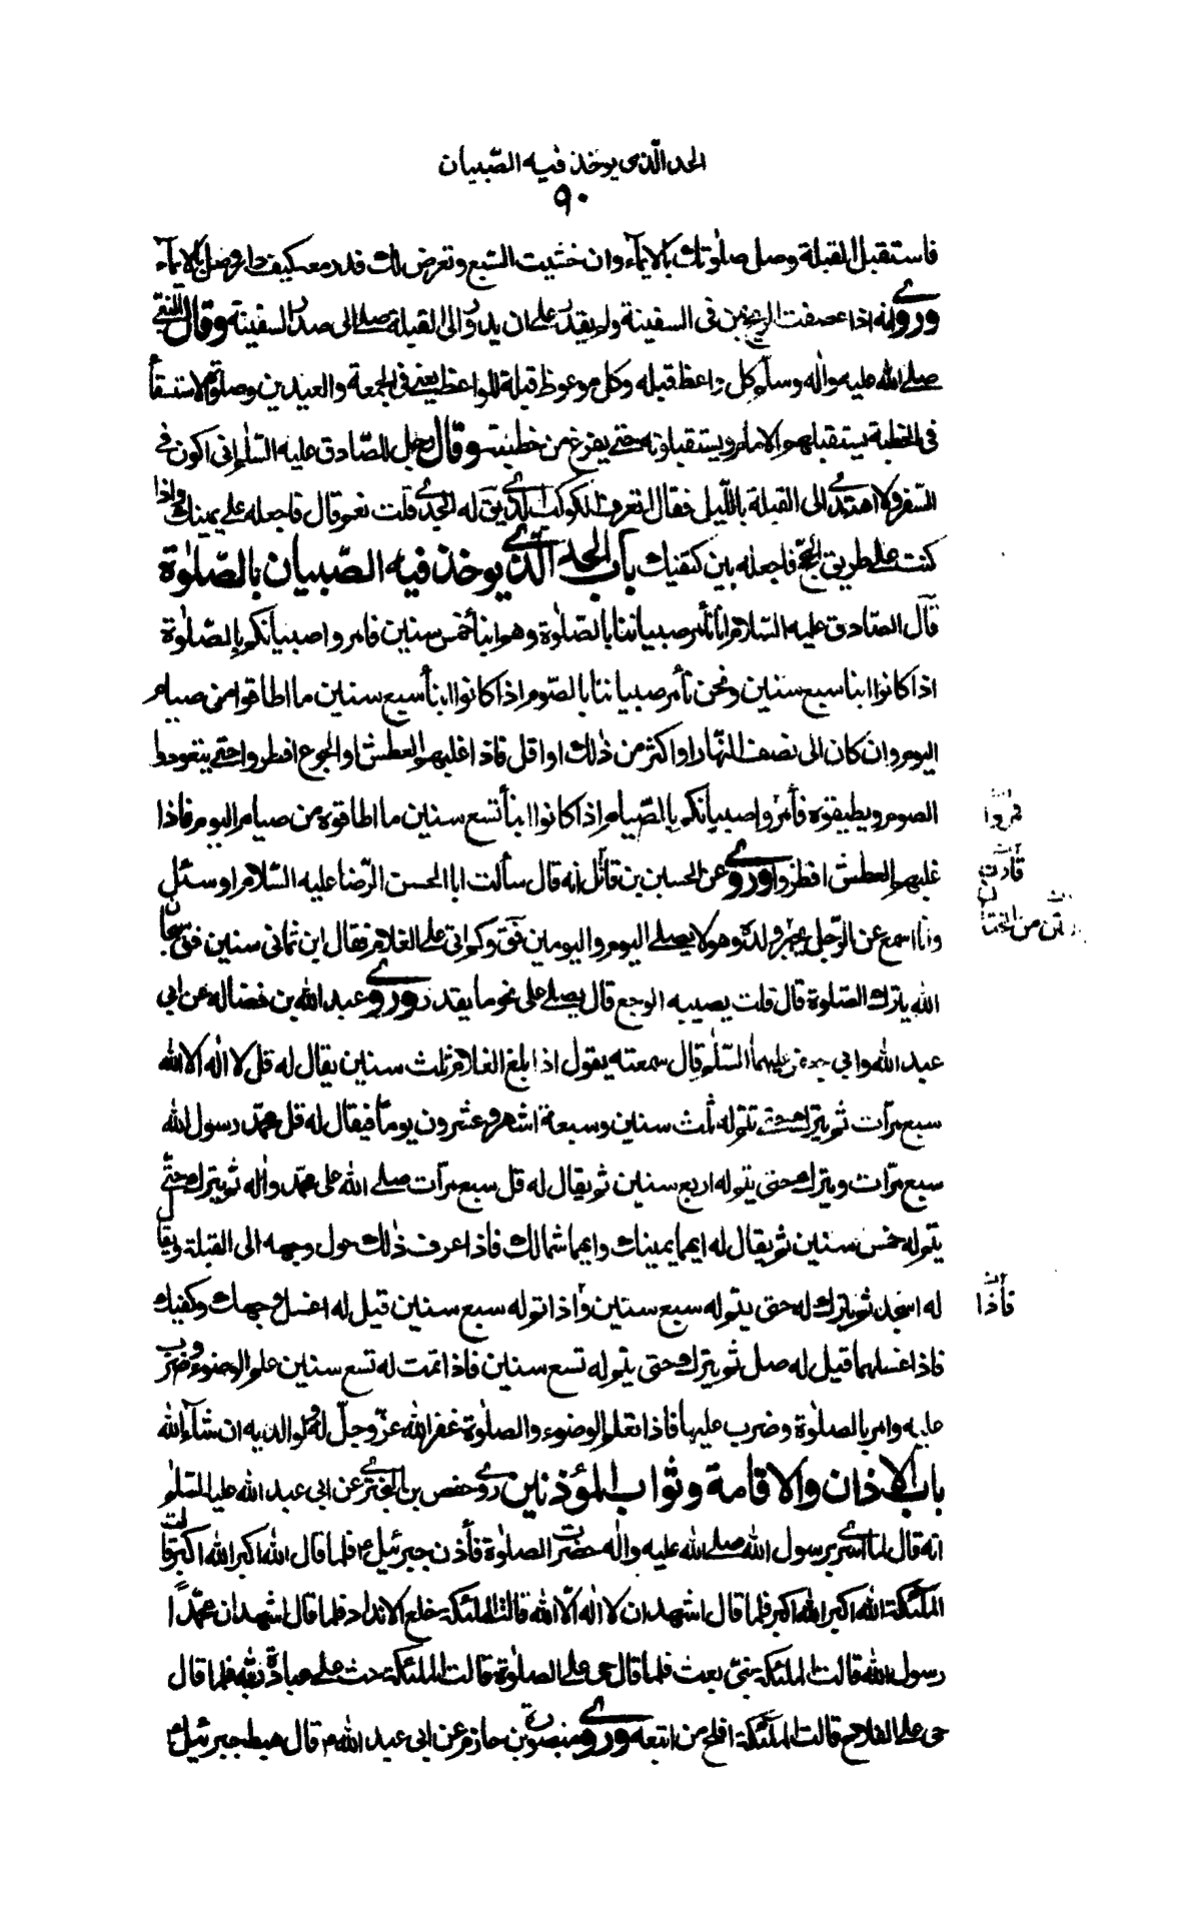 الحد الّذى يوخذ فيه الصّبيان
٩٠
فاستقبل القبلة وصل صلوتك بالايمآء وان خشيت السّبع وتعرض لك فدر معه كيف دار وصل بالايمآء
وروى انه اذا عصفت الريح بمن فى السفينة ولم يقدر على ان يدور الى القبلة صلى الى صدر السفينة وقال النّبى
صلى الله عليه واله وسلم كل واعظ قبله وكل موعوظ قبلة للواعظ يعنى فى الجمعة والعيدين وصلوة الاستسقآ
فى الخطبة يستقبلهم الامام ويستقبلونه حتى يفرغ من خطبته وقال رجل للصّادق عليه السّلم انى اكون فى
السّفر ولا اهتدى الى القبلة باللّيل فقال اتعرف الكوكب الذى يق له الجدى قلت نعم قال فاجعله على يمينك واذا
كنت على طريق الحج فاجعله بين كتفيك باب الحد الّذى يوخذ فيه الصّبيان بالصّلوة
قال الصّادق عليه السّلام انا نأمر صبياننا بالصّلوة وهم ابنأ خمس سنين فامروا صبيانكم بالصّلوة
اذا كانوا ابنا سبع سنين ونحن نأمر صبياننا بالصّوم اذا كانوا ابنأ سبع سنين ما اطاقوا من صيام
اليوم وان كان الى نصف النّهار او اكثر من ذلك او اقل فاذا غلبهم العطش او الجوع افطروا حتى يتعودوا
الصوم ويطيقوه فأمروا صبيانكم بالصّيام اذا كانوا ابنأ تسع سنين ما اطاقوه من صيام اليوم فاذا
غلبهم العطش افطروا وروى عن الحسين بن قائل انه قال سألت ابا الحسن الرّضا عليه السّلام او سئل
وانا اسمع عن الرّجل يجبر ولده وهو لا يصلى اليوم واليومين فق وكم اتى على الغلام فقال ابن ثمانى سنين فق سبحان
الله يترك الصّلوة قال قلت يصيبه الوجع قال يصلى على نحو ما يقدر وروى عبد الله بن فضاله عن ابى
عبد الله وابى جعفر عليهما السّلم قال سمعته يقول اذا بلغ الغلام ثلث سنين يقال له قل لا اله الا الله
سبع مرّات ثم يترك حتى تتم له ثلث سنين وسبعة اشهر وعشرون يوماً فيقال له قل محمّد رسول الله
سبع مرّات ويترك حتى يتم له اربع سنين ثم يقال له قل سبع مرّات صلى الله على محمّد واله ثم يترك حتّى
يتم له خمس سنين ثم يقال له ايهما يمينك وايهما شمالك فاذا عرف ذلك حول وجهه الى القبلة ويقال
له اسجد ثم يترك له حتى يتم له سبع سنين واذا تم له سبع سنين قيل له اغسل وجهك وكفيك
فاذا غسلهما قيل له صل ثم يترك حتى يتم له تسع سنين فاذا تمت له تسع سنين علم الوضوء وضرب
عليه وامر بالصلوة وضرب عليها فاذا تعلم الوضوء والصلوة غفر الله عزّ وجلّ له ولوالديه ان شآء الله
باب الاذان والاقامة وثواب المؤذنين روى حفص بن البخترى عن ابى عبد الله عليه السّلم
انه قال لما اسرى برسول الله صلى الله عليه واله حضرت الصلوة فأذن جبرئيل ع فلما قال الله اكبر الله اكبر قالت
الملئكة الله اكبر الله اكبر فلما قال اشهد ان لا اله الّا الله قالت الملئكة خلع الانداد فلما قال اشهد ان محمّداً
رسول الله قالت الملئكة نبىّ بعث فلما قال حى على الصلوة قالت الملئكة حث على عبادة ربه فلما قال
حى على الفلاح قالت الملئكة افلح من اتبعه وروى منصور بن حازم عن ابى عبد الله ع قال هبط جبرئيل ع
فمروا
فأذا